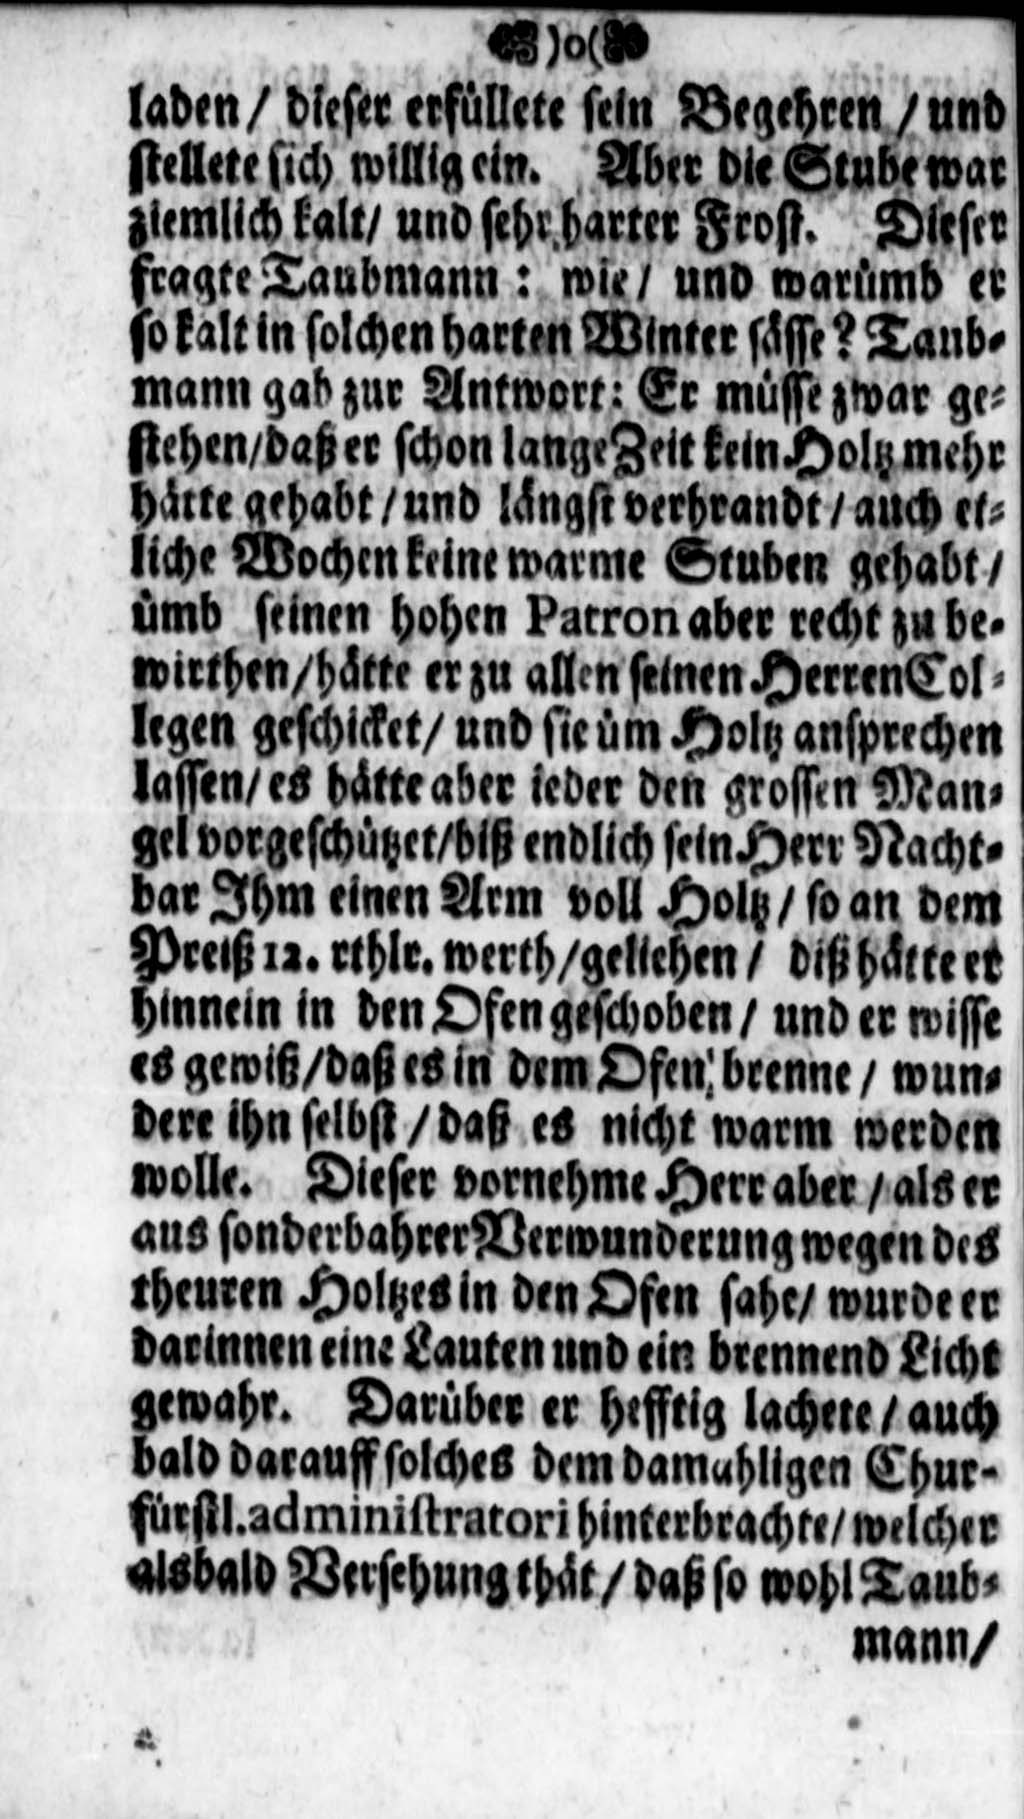 )o(
laden/ dieser erfüllete sein Begehren / und
stellete sich willig ein. Aber die Stube war
ziemlich kalt/ und sehr harter Frost. Dieser
fragte Taubmann : wie / und warümb er
so kalt in solchen harten Winter sässe? Taub-
mann gab zur Antwort: Er müsse zwar ge-
stehen/daß er schon lange Zeit kein Holtz mehr
hätte gehabt / und längst verbrandt / auch et-
liche Wochen keine warme Stuben gehabt /
ümb seinen hohen Patron aber recht zu be-
wirthen/hätte er zu allen seinen Herren Col-
legen geschicket/ und sie üm Holtz ansprechen
lassen/ es hätte aber ieder den grossen Man-
gel vorgeschützet/biß endlich sein Herr Nacht-
bar Ihm einen Arm voll Holtz / so an dem
Preiß 12. rthlr. werth/geliehen / diß hätte er
hinnein in den Ofen geschoben / und er wisse
es gewiß/daß es in dem Ofen brenne / wun-
dere ihn selbst / daß es nicht warm werden
wolle. Dieser vornehme Herr aber / als er
aus sonderbahrer Verwunderung wegen des
theuren Holtzes in den Ofen sahe/ wurde er
darinnen eine Lauten und ein brennend Licht
gewahr. Darüber er hefftig lachete / auch
bald darauff solches dem damahligen Chur-
fürstl. administratori hinterbrachte/ welcher
alsbald Versehung thät / daß so wohl Taub-
mann/